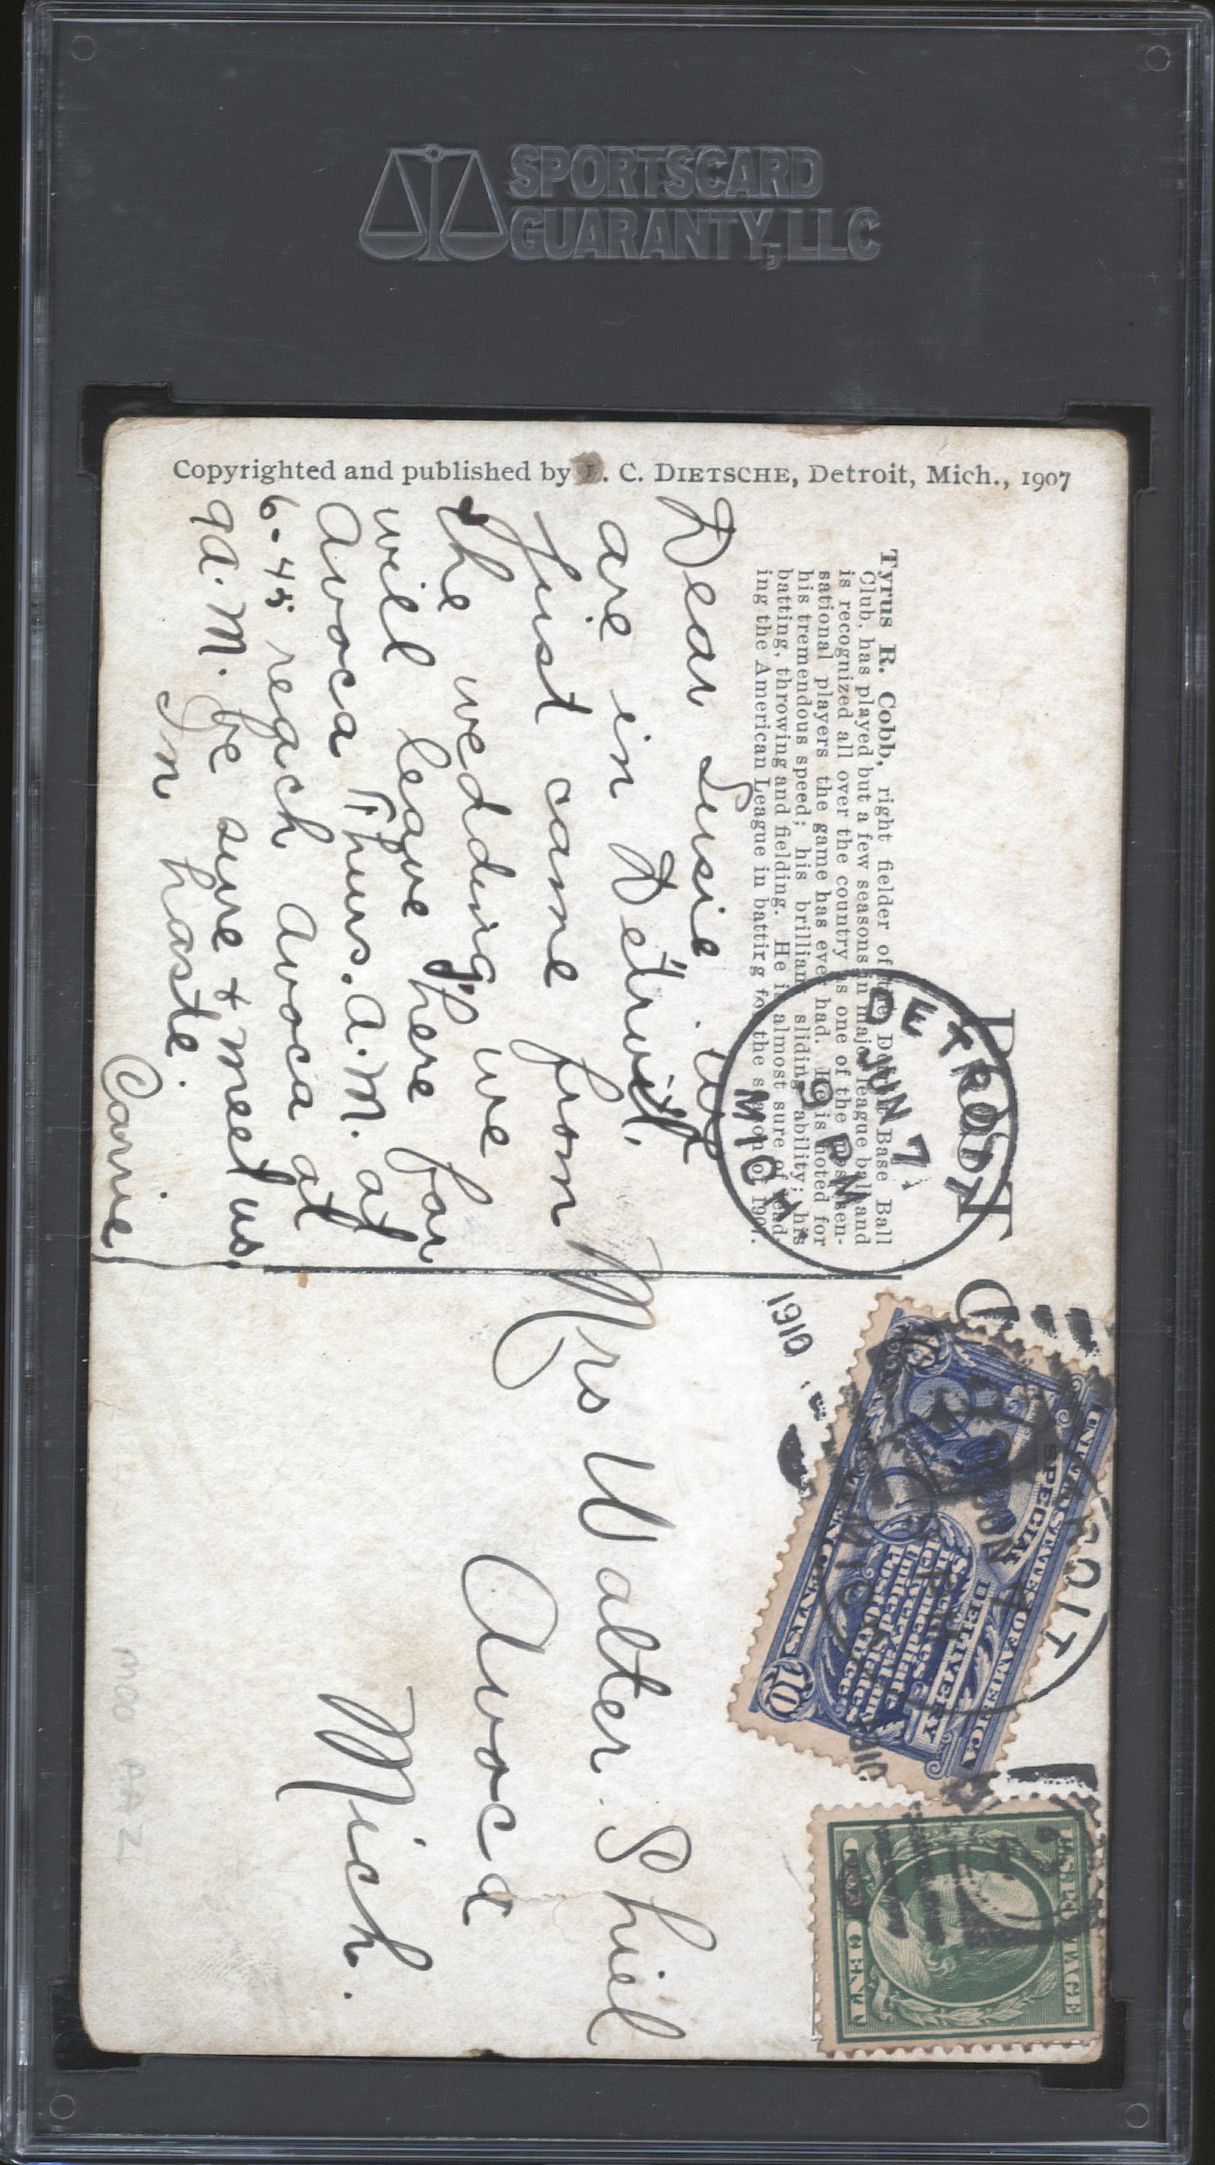 SPORTSCARD
GUARANTY, LLC
Copyrighted and published by . C. DIETSCHE, Detroit, Mich., 1907
Tyrus R. Cobb, right fielder of the Detroit Base Ball
Club, has played but a few seasons in major league ball and
is recognized all over the country as one of the most sen-
sational players the game has ever had. He is noted for
his tremendous speed; his brilliant sliding ability; his
batting, throwing and fielding. He is almost sure of lead-
ing the American League in batting for the season of 1907.
Dear Susie. We
are in Detroit,
Just came from
the wedding we
will leave here for
Avoca Thurs. A.M. at
6-45 reach Avoca at
9 A.M. be sure & meet us.
In haste
Carrie
DETROIT
JUN 7
9 PM
MICH.
1910
Mrs Walter Shiel
Avoca
Mich.
UNITED STATES OF AMERICA
SPECIAL DELIVERY
TEN CENTS
10
U.S. POSTAGE
CENT
M00 AAZ